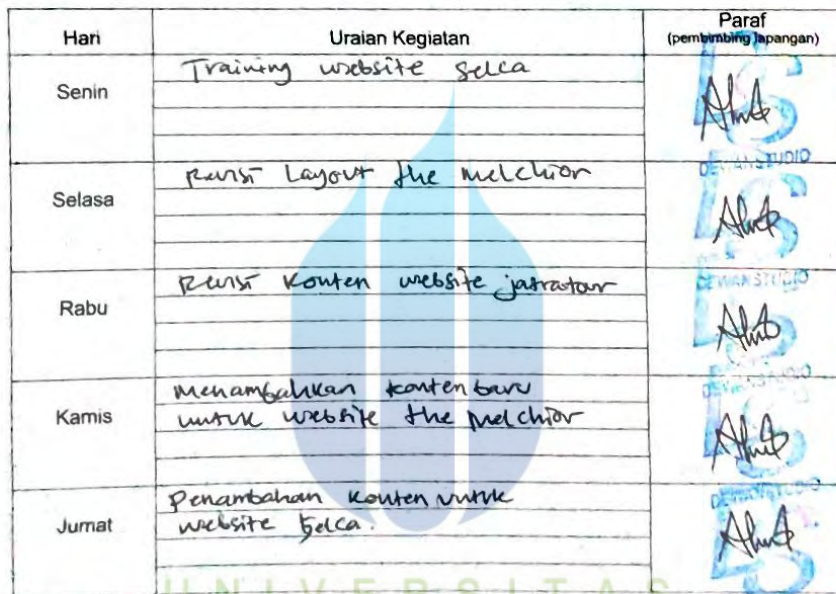 Hari Uraian Kegiatan Paraf
(pembimbing lapangan)
Senin Training website Selca
DEWANSTUDIO
Selasa Revisi Layout the Melchior
DEWANSTUDIO
Rabu Revisi Konten website jatratour
DEWANSTUDIO
Kamis Menambahkan konten baru
untuk website the Melchior
DEWANSTUDIO
Jumat Penambahan Konten untuk
website Selca.
UNIVERSITAS